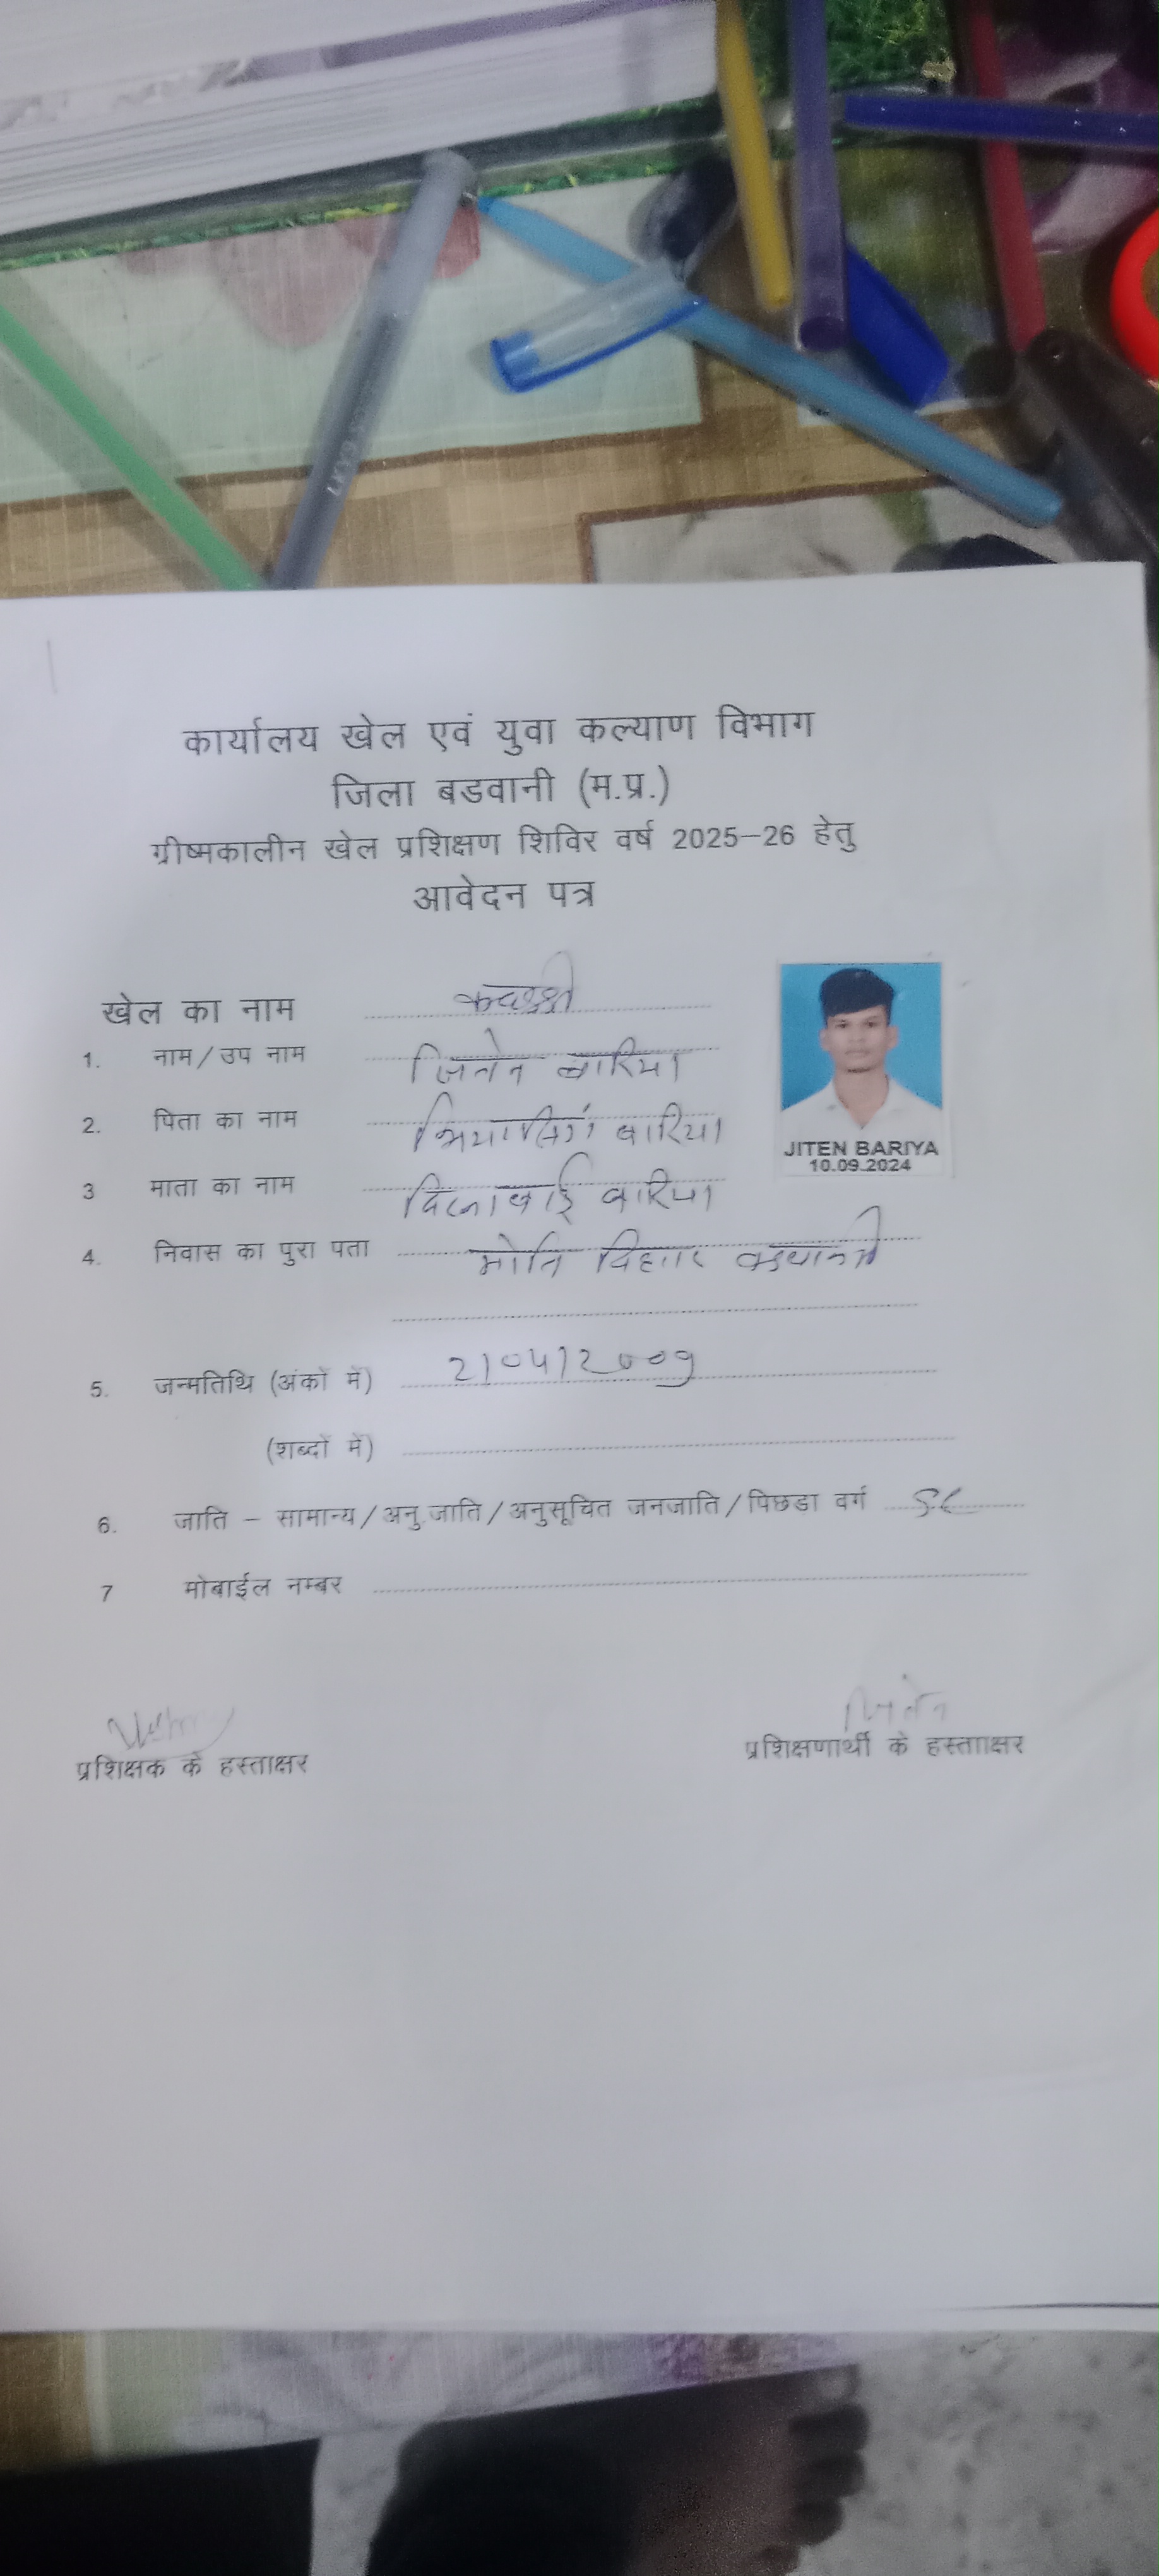 कार्यालय खेल एवं युवा कल्याण विभाग
जिला बडवानी (म.प्र.)
ग्रीष्मकालीन खेल प्रशिक्षण शिविर वर्ष 2025–26 हेतु
आवेदन पत्र
खेल का नाम
1. नाम/उप नाम जितेन बारिया
2. पिता का नाम बारिया
3 माता का नाम बारिया
4. निवास का पुरा पता मोति विहार
5. जन्मतिथि (अंकों में)
(शब्दों में)
6. जाति – सामान्य/अनु.जाति/अनुसूचित जनजाति/पिछडा वर्ग
7 मोबाईल नम्बर
JITEN BARIYA
10.09.2024
जितेन
प्रशिक्षक के हस्ताक्षर प्रशिक्षणार्थी के हस्तााक्षर